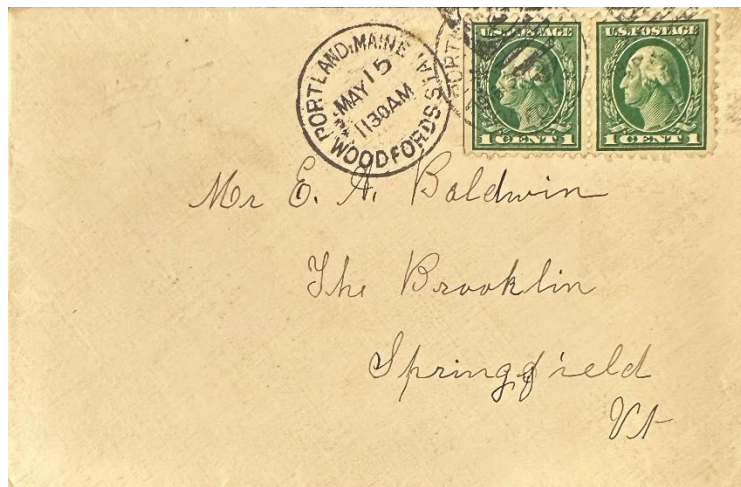 PORTLAND, MAINE
MAY 15
1130 AM
WOODFORDS STA.
U.S. POSTAGE
1 CENT 1
U.S. POSTAGE
1 CENT 1
Mr E. A. Baldwin
The Brooklin
Springfield
Vt